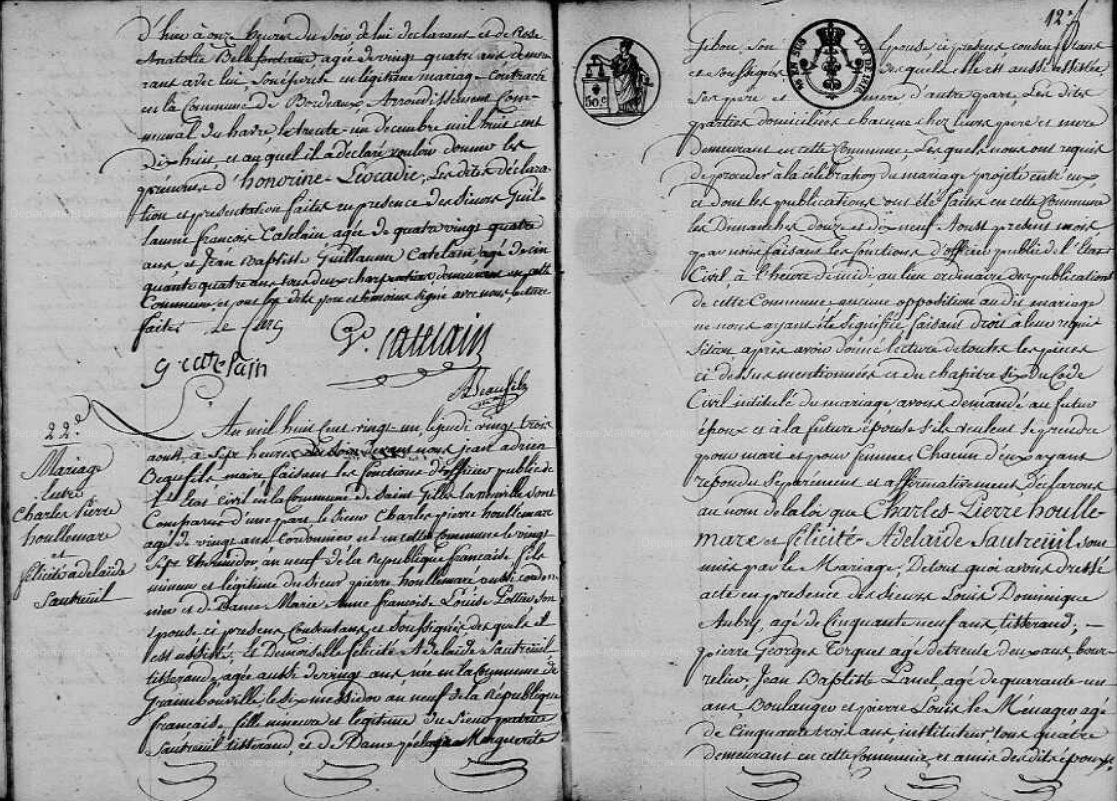 d'hier à onze heures du soir de lui déclarant et de Rose
Anatolie Bellefontaine agée de vingt quatre ans demeu-
rant avec lui, son épouse en légitime mariage contracté
en la Commune de Bordeaux Arrondissement Com-
munal du havre le trente-un decembre mil huit cent
Dix huit, et auquel il a déclaré vouloir donner les
prénoms d'honorine-Léocadie, Les dites déclara-
tion et présentation faites en presence des Sieurs Guil-
laume françois Catelain agée de quatre vingt quatre
ans et Jean Baptiste Guillaume Catelain agé de cin
quante quatre ans tous deux charpentier demeurant en cette
Commune, et ont les dits pere et temoins signé avec nous lecture
faite.
g catelain
G. catelain
Beaufils
22e
Mariage
entre
Charles Pierre
houllemare
et
félicité adelaïde
Sautreüil
An mil huit Cent vingt-un, le jeudi vingt trois
aoust, à Sept heures du Soir devant nous jean adrien
Beaufils, maire faisant les fonctions d'officier public de
l'Etat Civil en la Commune de Saint Gilles la neuville sont
Comparus d'une part le Sieur Charles-pierre houllemare
agé de vingt ans Cordonnier né en cette Commune le vingt
Sept thermidor an neuf de la République francaise fils
mineur et légitime du Sieur pierre houllemare aussi cordon-
nier et de Dame Marie Anne françoise Louise Pottier son
epouse ci presens Consentans et Soussignés des quels il
est assisté; Et Demoiselle félicité Adelaïde Sautreuil
tisserande, agée aussi de vingt ans née en la Commune de
Graimbouville, le six messidor an neuf de la République
français, fille mineure et légitime du Sieur patrice
Sautreuil tisserand, et de Dame pélagie Marguerite
127
50 c
LOI DE 1816
Gebon son Epouse ci presens consentans
et soussignés des quels elle est aussi assistée
Ses pere et mere d'autre part, Les dits
parties domiciliés chacune chez leurs pere et mere
demeurant en cette Commune, Lesquels nous ont requis
de procéder à la célébration du mariage projeté entr'eux,
et dont les publications ont été faites en cette Commune
les Dimanches douze et dix neuf Aoust present mois
par nous faisant les fonctions d'officier public de l'Etat
Civil, à l'heure de midi, au lieu ordinaire des publications
de cette Commune aucune opposition au dit mariage
ne nous ayant été signifiée faisant droit à leur requi-
sition, après avoir donné lecture de toutes les pièces
ci dessus mentionnées et du chapitre six du Code
Civil intitulé du mariage, avons demandé au futur
époux et à la future épouse s'ils veulent se prendre
pour mari et pour femme, Chacun d'eux ayant
repondu Séparement et affirmativement déclarons
au nom de la loi que Charles-Pierre houlle-
mare et félicité-Adelaïde Sautreuil sont
unis par le Mariage, De tout quoi avons dressé
acte en presence des Sieurs Louis Dominique
Aubry agé de Cinquante neuf ans, tisserand; —
pierre Georges Torquet agé de trente deux ans, bour-
relier, Jean Baptiste Panel, agé de quarante un
ans Boulanger et pierre Louis le Ménager agé
de Cinquante trois ans, instituteur tous quatre
demeurant en cette Commune et amis des dits époux